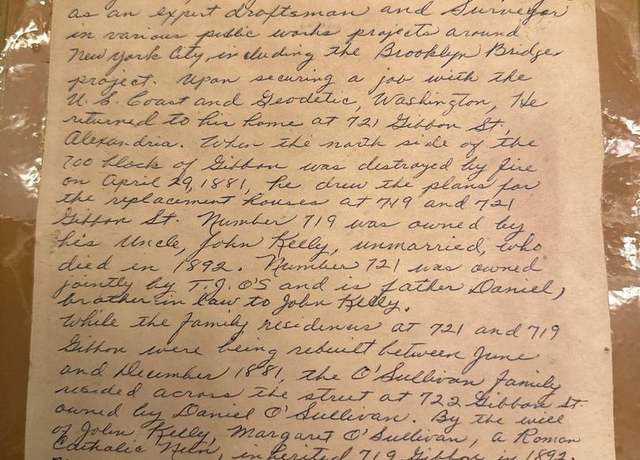 as an expert draftsman and Surveyor
in various public works projects around
New York City, including the Brooklyn Bridge
project. Upon securing a job with the
U.S. Coast and Geodetic, Washington, He
returned to his home at 721 Gibbon St,
Alexandria. When the north side of the
700 block of Gibbon was destroyed by fire
on April 29, 1881, he drew the plans for
the replacement houses at 719 and 721
Gibbon St. Number 719 was owned by
his Uncle, John Kelly, unmarried, who
died in 1892. Number 721 was owned
jointly by T.J. O'S and is father Daniel,
brother in law to John Kelly.
While the family residences at 721 and 719
Gibbon were being rebuilt between June
and December 1881, the O'Sullivan family
resided across the street at 722 Gibbon St.
owned by Daniel O'Sullivan. By the will
of John Kelly, Margaret O'Sullivan, a Roman
Catholic Nun, inherited 719 Gibbon in 1892.